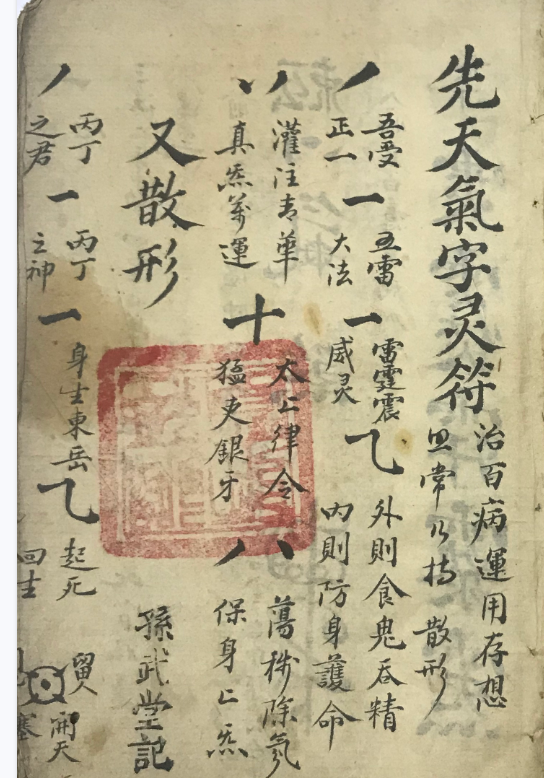 先天氣字灵符
治百病運用存想
常以持散形
丿
吾受
正一
一
五雷
大法
一
雷霆震
威灵
乁
外則食鬼吞精
内則防身護命
丷
灌注青華
真炁萬運
十
太上律令
猛吏銀牙
八
蕩穢除氛
保身上炁
又散形
孫武堂記
丿
丙丁
之君
一
丙丁
之神
一
身生東岳
乁
起死
回生
留人
開天
塞